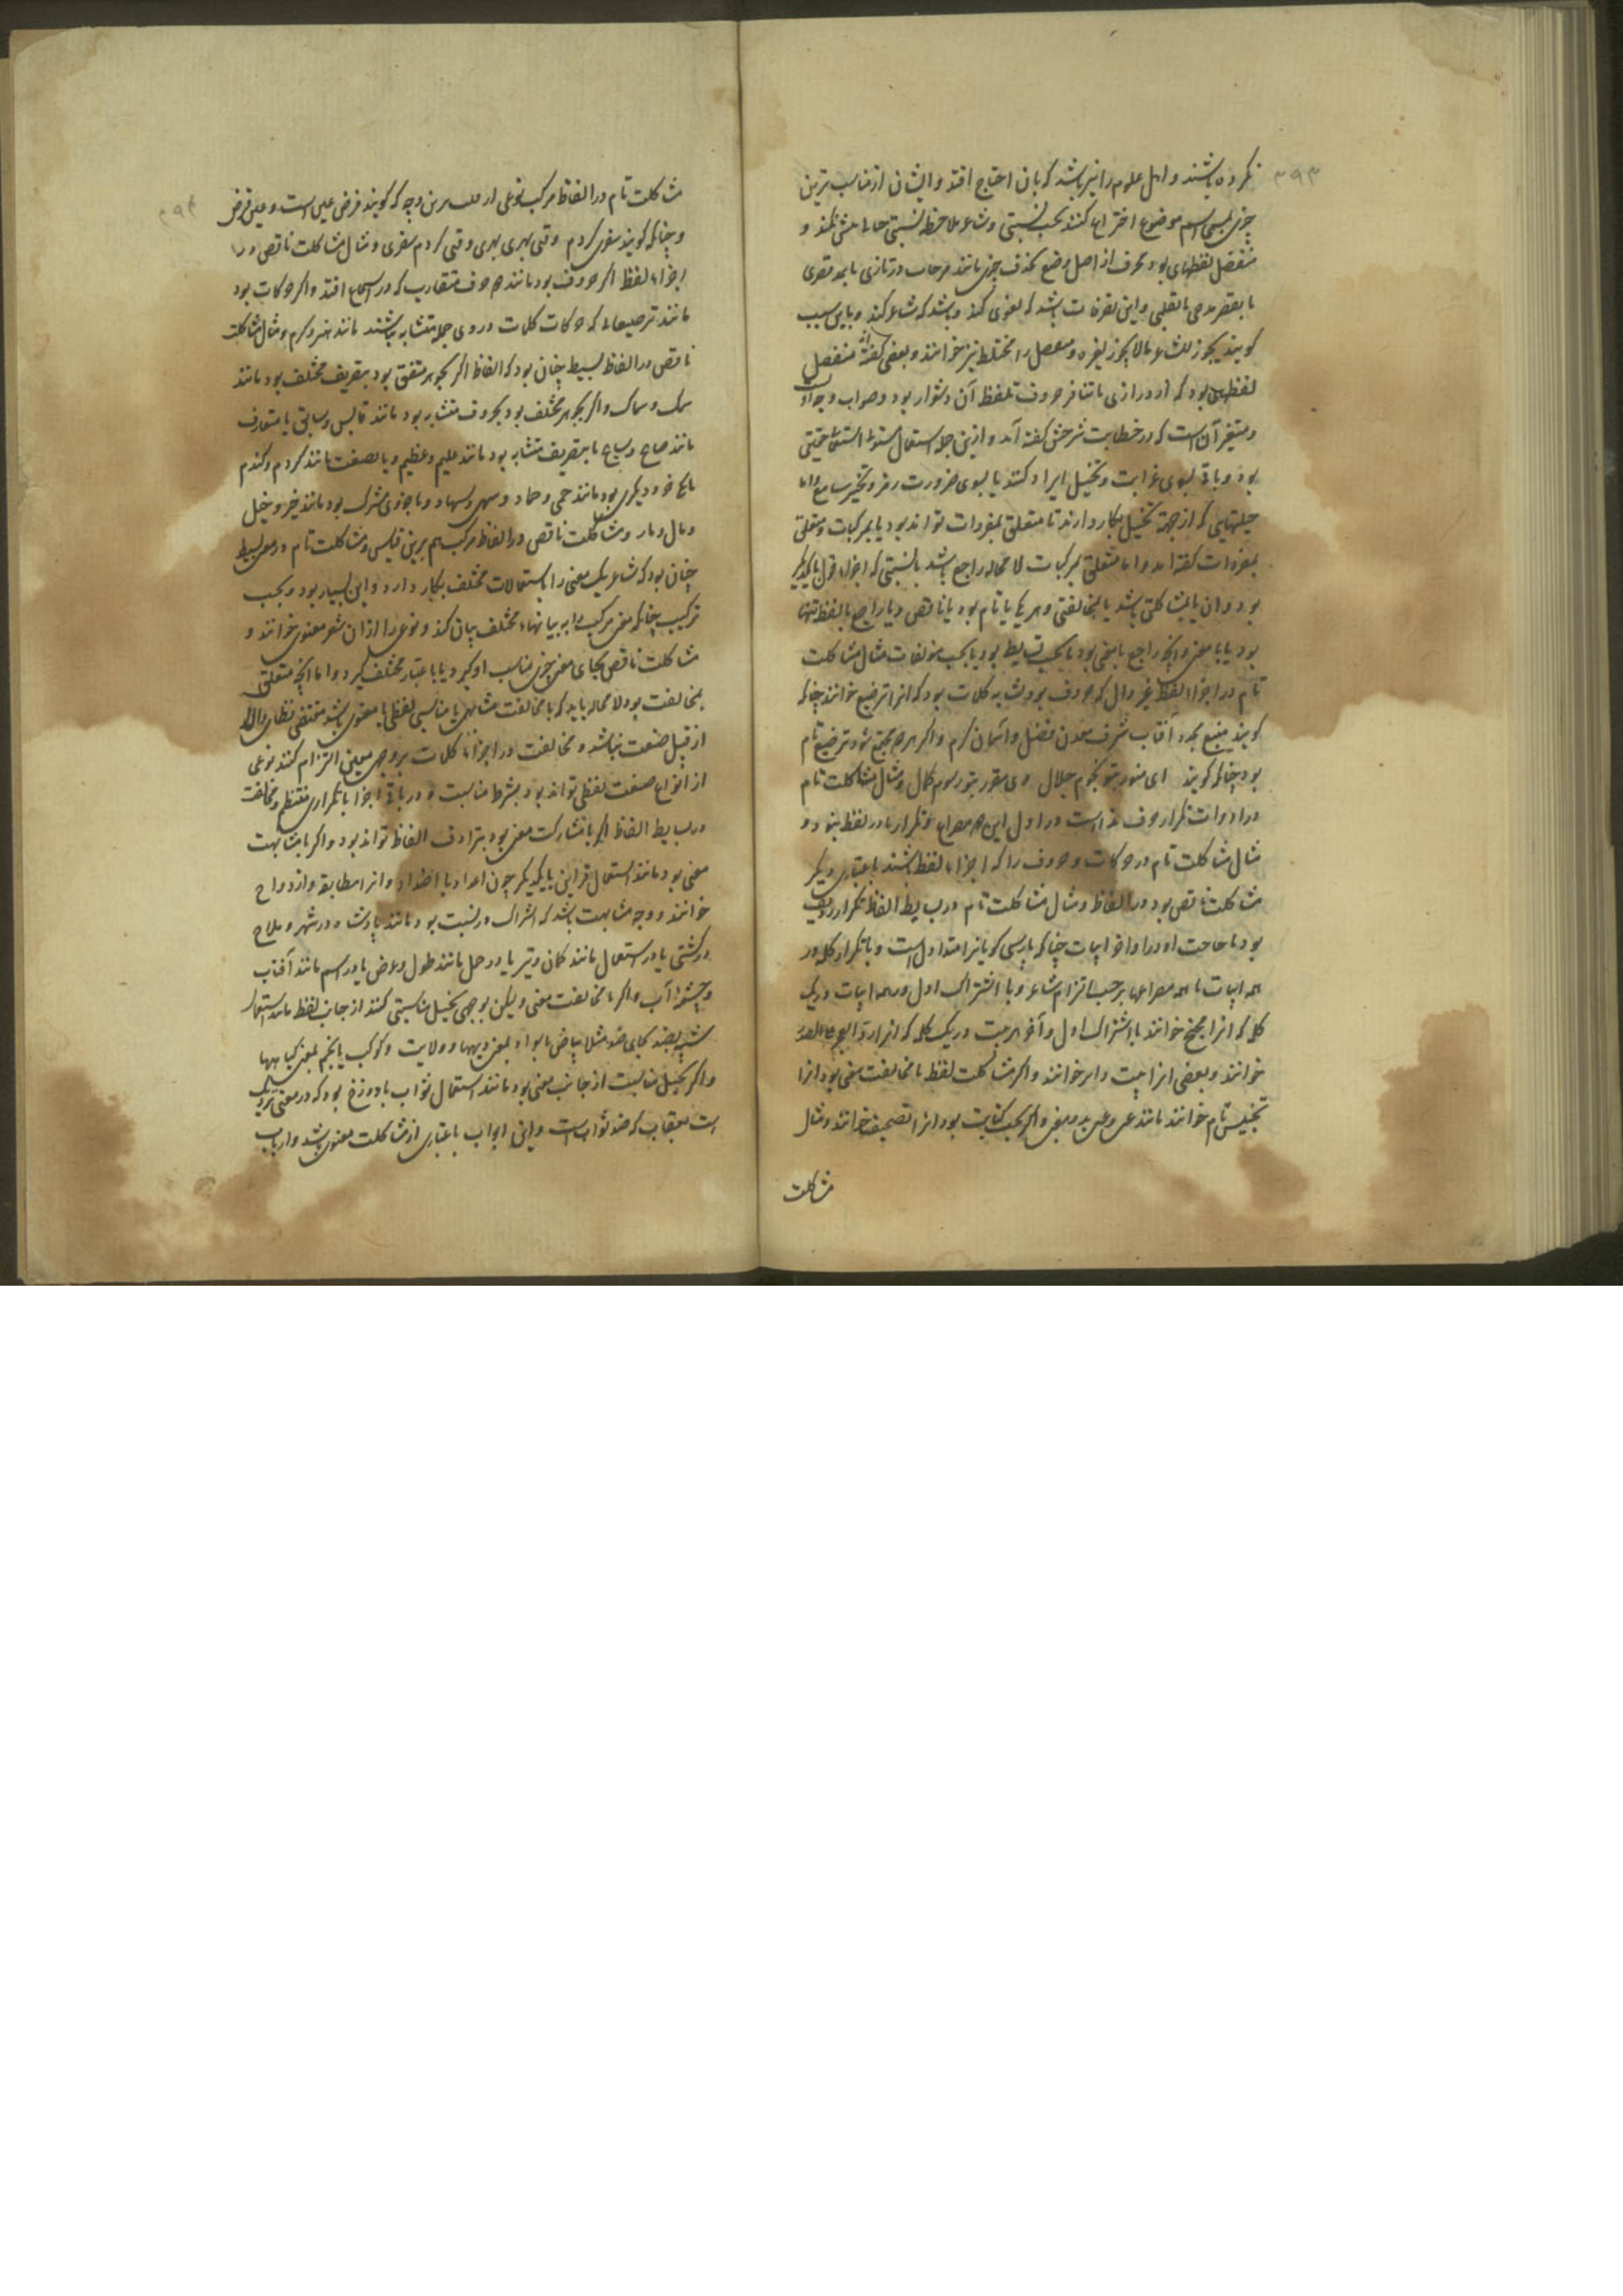 نکرده باشند و اهل علوم را نیز باشد که بآن احتیاج افتد و ایشان از مناسب ترین
چیزی بمسمی اسم موضوع اختراع کنند بحسب نسبتی و شاعر ملاحظه نسبتی کند و
منفصل لفظهای بود محرف از اصل وضع بحذف چیزی مانند در تازی یا بمد مقصوری
یا بقصر ممدودی یا بقلبی و این تصرفات باشد که لغوی کند و باشد که شاعر کند و باین سبب
کویند یجوز للشاعر مالا یجوز لغیره و منفصل را مختلط نیز خوانند و بعضی کفته اند منفصل
لفظهایی بود که از درازی یا تنافر حروف تلفظ آن دشوار بود و صواب وجه اول است
و متغیر آن است که در خطابت شرحش کفته آمد و ازین جمله استعمال مستولی استقلال حقیقی
بود و باقی بسوی غرابت و تخییل ایراد کنند یا بسوی ضرورت رمز و تحیر سامع و اما
حیلتهایی که از جهت تخییل بکار دارند تا متعلق بمفردات تواند بود یا بمرکبات و متعلق
بمفردات کفته آمد و اما متعلق بمرکبات لا محاله راجع باشد با نسبتی که اجزاء قول را با یکدیکر
بود و آن یا بمشاکلتی باشد یا بمخالفتی و هر یکی یا تام بود یا ناقص و یا راجع با لفظ تنها
بود یا با معنی و آنچه راجع با معنی بود یا بحسب بسایط بود یا بحسب مؤلفات مثال مشاکلت
تام در اجزاء لفظ غیر دال که حروف بود تشابه کلمات بود که آنرا ترصیع خوانند چنانکه
کویند منبع مجد و آفتاب شرف معدن فضل و آسمان کرم و اکر هر دو مجتمع شود ترصیع تام
بود چنانکه کویند ای منور بتو نجوم جلال وی مقرر بتو رسوم کمال و مثال مشاکلت تام
در ادوات تکرار حرف ندا است در اول این دو مصراع و تکرار با در لفظ بتو و
مثال مشاکلت تام در حرکات و حروف را که اجزاء لفظ باشند باعتباری دیکر
مشاکلت ناقص بود در الفاظ و مثال مشاکلت تام در بسایط الفاظ تکرار ردیف
بود یا حاجت او در اواخر ابیات چنانکه پارسی کویانرا متداول است و یا تکرار کلمه در
همه ابیات یا همه مصراعها برحسب التزام شاعر و یا اشتراک اول و همه ابیات در یک
کلمه که آنرا مجنح خوانند یا اشتراک اول و آخر هر بیت در یک کلمه که آنرا رد العجز علی الصدر
خوانند و بعضی آنرا بیت دایر خوانند و اکر مشاکلت لفظ با مخالفت معنی بود آنرا
تجنیس تام خوانند مانند عین و عین بدو معنی و اکر بحسب کتابت بود آنرا تصحیف خوانند و مثال
مشاکلت
مشاکلت تام در الفاظ مرکب نوعی از قلب برین وجه که کویند فرض عین است و عین فرض
و چنانکه کویند سفری کردم وقتی بهری بهری وقتی کردم سفری و مثال مشاکلت ناقص در
اجزاء لفظ اکر حروف بود مانند حروف متقارب که در اسجاع افتد و اکر حرکات بود
مانند ترصیعاتی که حرکات کلمات در وی جمله متشابه باشند مانند هنر و کرم و مثال مشاکلت
ناقص در الفاظ بسیط چنان بود که الفاظ اکر بجوهر متفق بود بتصریف مختلف بود مانند
سمک و سماک و اکر بجوهر مختلف بود بحروف متشابه بود مانند قابس و سابق یا متقارب
مانند صباح و سباح یا بتصریف متشابه بود مانند علیم و عظیم و یا بصفت مانند کردم و کندم
یا یکی جزو دیکری بود مانند حمی و حماد و سهر و سهاد و یا جزوی مشترک بود مانند خیر و خیل
و مال و مار و مشاکلت ناقص در الفاظ مرکب هم برین قیاس و مشاکلت تام در معنی بسیط
چنان بود که شاعر یک معنی را باستعمالات مختلف بکار دارد و این بسیار بود و بحسب
ترکیب چنانکه معنی مرکب را به بیانهاء مختلف بیان کند و نوعی را ازان شعر معنوی خوانند و
مشاکلت ناقص بجای معنی چیزی مناسب او کیرد یا باعتبار مختلف کیرد و اما آنچه متعلق
بمخالفت بود لا محاله باید که با مخالفت مشابهتی یا مناسبتی لفظی یا معنوی باشد مقتضی نظامی والا
از قبیل صنعت نباشد و مخالفت در اجزاء کلمات بر وجهی معین التزام کنند نوعی
از انواع صنعت لفظی تواند بود بشرط مناسبت در باقی اجزا یا تکراری منتظم و مخالفت
در بسایط الفاظ اکر با مشارکت معنی بود بترادف الفاظ تواند بود و اکر با مشابهت
معنی بود مانند استعمال قراین با یکدیکر چون اعداد یا اضداد و آنرا مطابقه و ازدواج
خوانند و وجه مشابهت باشد که اشتراک در نسبت بود مانند پادشاه در شهر و ملاح
در کشتی یا در استعمال مانند کمان و تیر یا در حمل مانند طول و عرض یا در اسم مانند آفتاب
و چشمه آب و اکر با مخالفت معنی ولیکن بوجهی تخییل مناسبتی کنند از جانب لفظ مانند استعمال
شبیه بضد بجای ضد مثلا بیاض با سواد بمعنی دیهها و ولایت و کوکب یا نجم بمعنی کیاهها
و اکر تخییل مناسبت از جانب معنی بود مانند استعمال ثواب با دوزخ بود که در معنی نزدیک
است بعقاب که ضد ثواب است و این ابواب باعتباری از مشاکلت معنوی باشد و ارباب